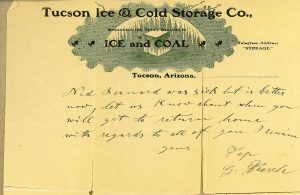 Tucson Ice & Cold Storage Co.,
Wholesale and Retail Dealers in
ICE and COAL
Telegram Address:
"STORAGE."
Tucson, Arizona,
Ned Bernard was sick but is better
now, let us know about when you
will get to return home
with regards to all of you I remain
yours